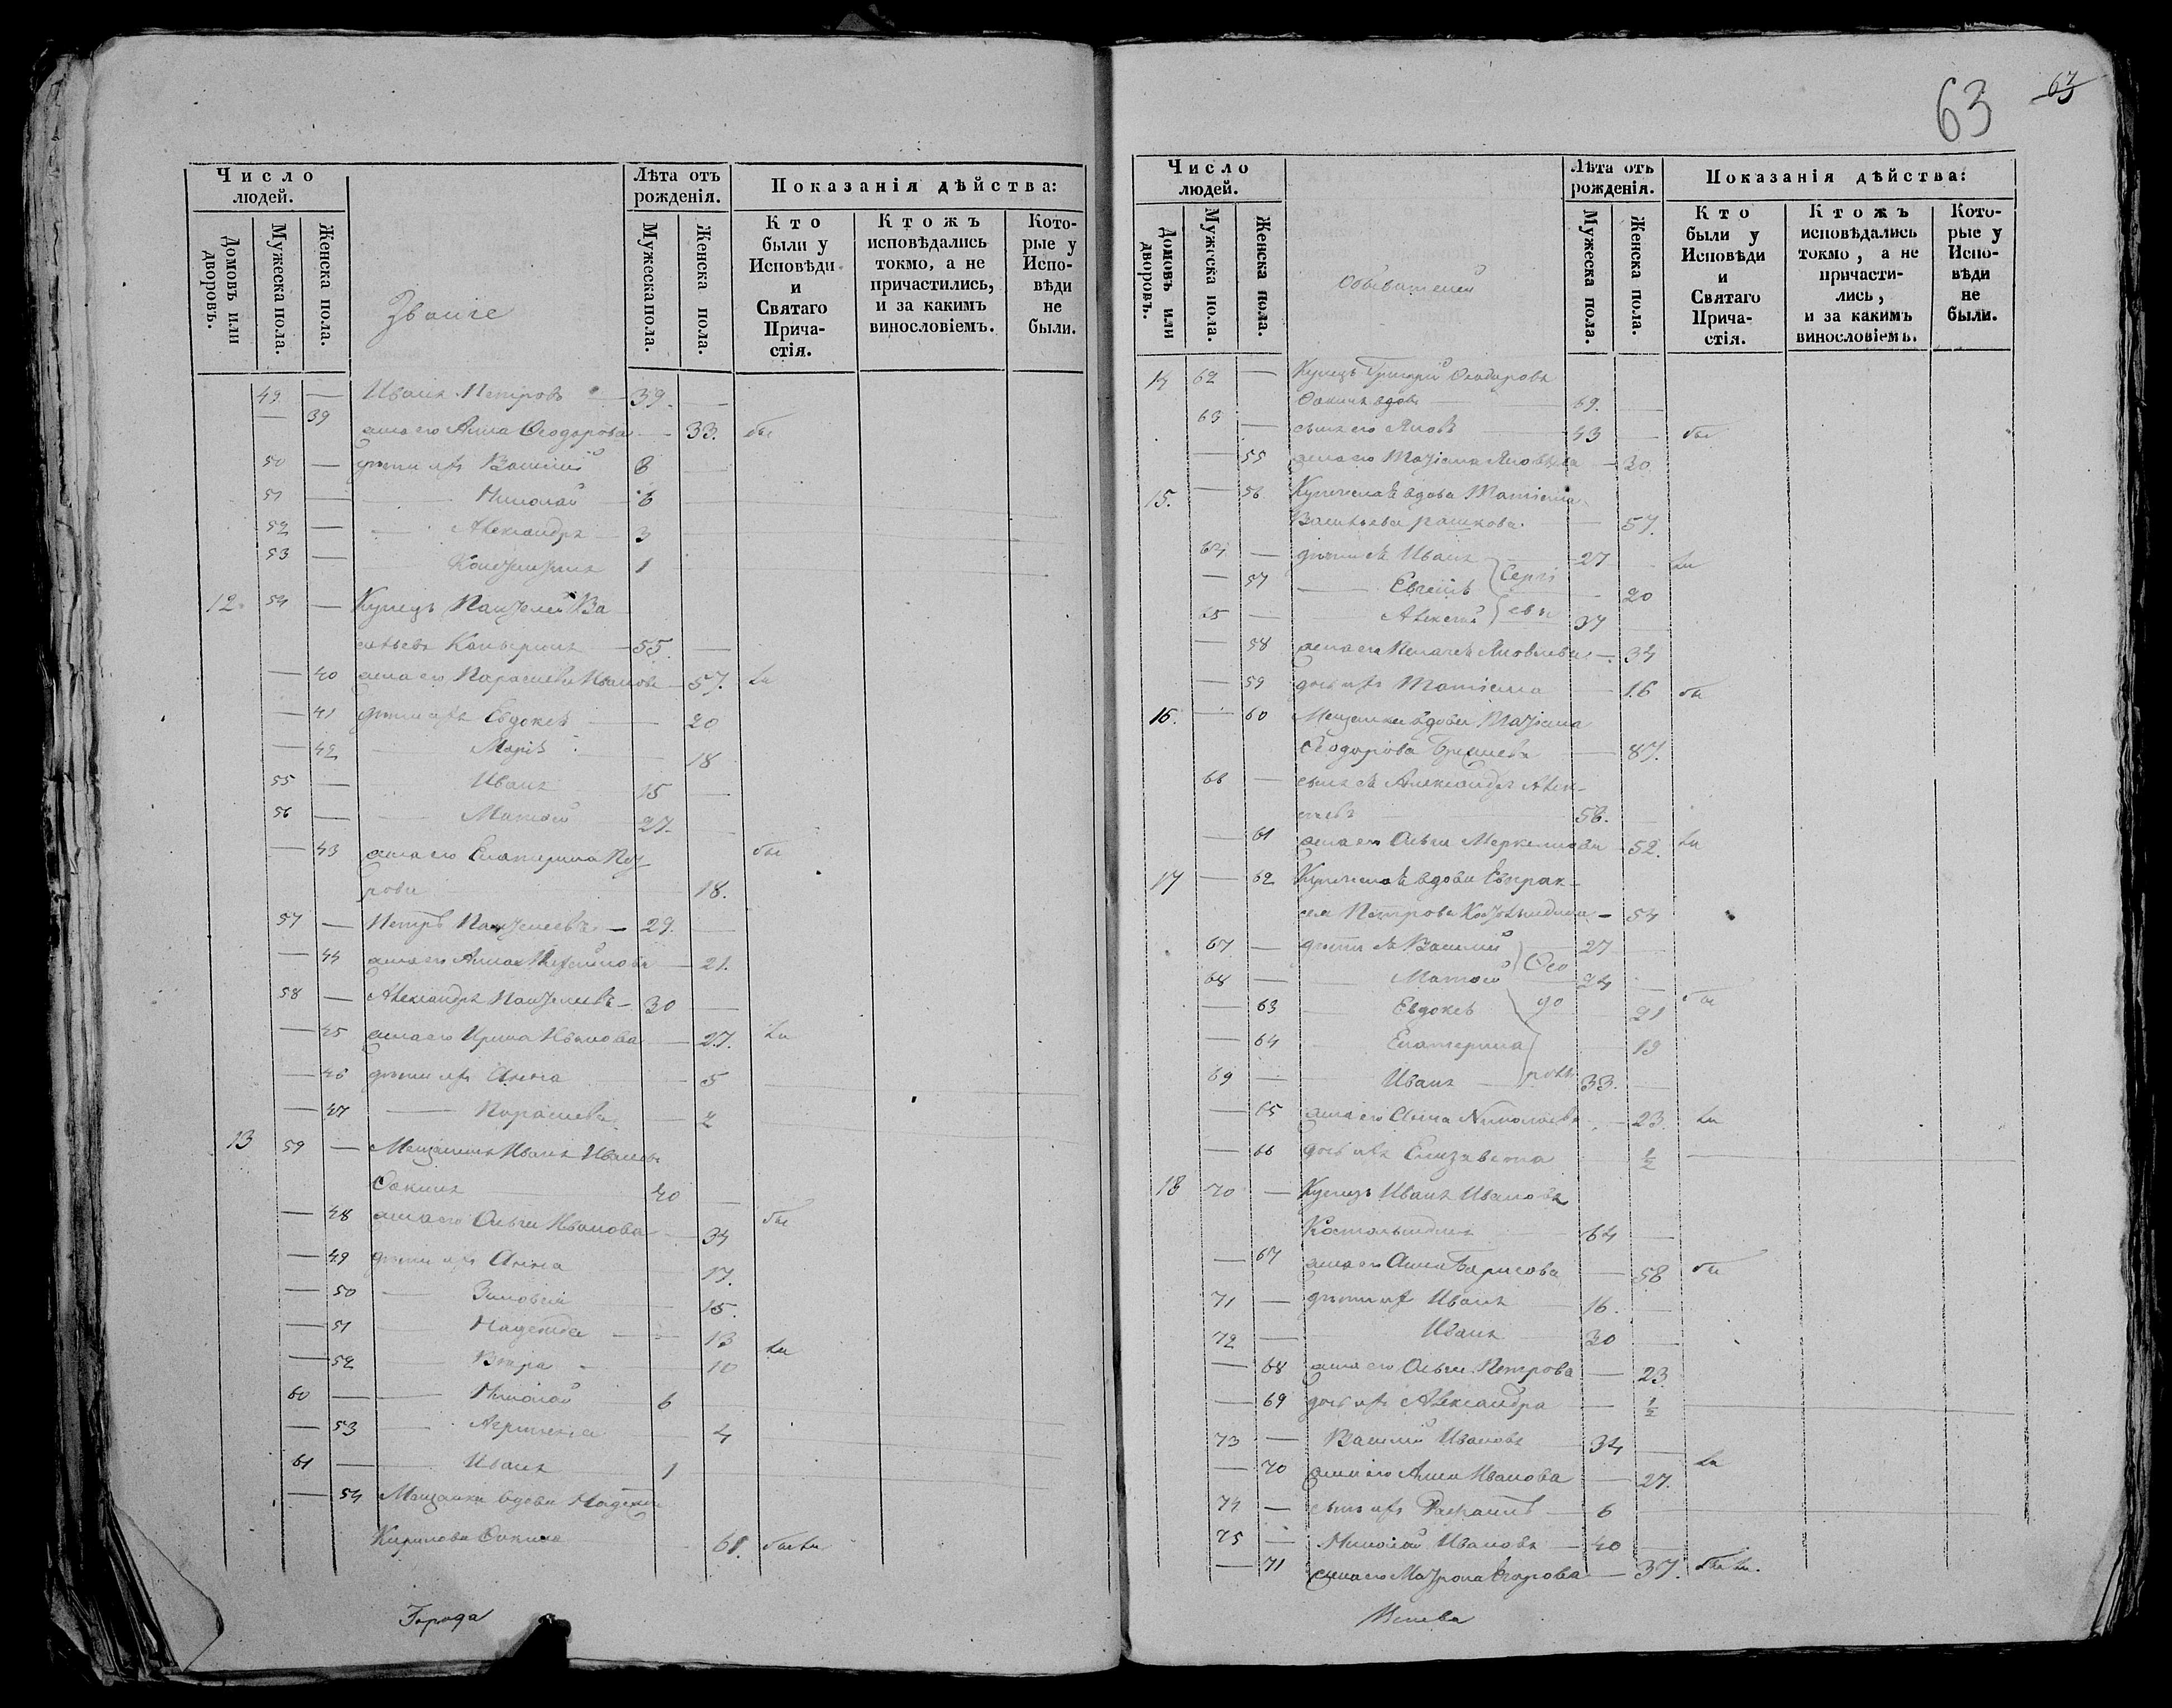 63
67
Число людей.
Домовъ или дворовъ.
Мужеска пола.
Женска пола.
Званіе
Лѣта отъ рожденія.
Мужеска пола.
Женска пола.
Показанія дѣйства:
Кто были у Исповѣди и Святаго Причастія.
Ктожъ исповѣдались токмо, а не причастились, и за какимъ винословіемъ.
Которые у Исповѣди не были.
49 — Иванъ Петровъ — 39. —
— 39 жена его Анна Ѳеодорова — 33. бы
50 — дѣти ихъ Василій 8
51 — Николай 6
52 — Александръ 3
53 — 1
12. 54 — Купецъ Пантелей Ва
сильевъ — 55. —
— 40 жена его Параскева Иванова — 57. ли
— 41 дѣти ихъ Евдокія — 20
— 42 Марія — 18
55 — Иванъ 15 —
56 — Матвей 27. —
— 43 жена его Екатерина Пет
рова 18. бы
57 — Петръ Пантелеевъ — 29. —
— 44 жена его Анна — 21.
58 — Александръ Пантелеевъ — 30 —
— 45 жена его Ирина Иванова — 27. ли
— 46 дѣти ихъ Анна — 5
— 47 — Параскева — 2
13 59 — Мещанинъ Иванъ Ивановъ
Сокинъ 40 —
— 48 жена его Ольга Иванова — 34 бы
— 49 дѣти ихъ Анна 17.
— 50 — Зиновія — 15.
— 51 — Надежда — 13
— 52 — Вѣра — 10 ли
60 — Николай 6
— 53 — Агрипена — 4
61 — Иванъ 1
— 54 Мещанка вдова Надежда
Кирилова Сокина 61. были
Города
Число людей.
Домовъ или дворовъ.
Мужеска пола.
Женска пола.
Обывателей
Лѣта отъ рожденія.
Мужеска пола.
Женска пола.
Показанія дѣйства:
Кто были у Исповѣди и Святаго Причастія.
Ктожъ исповѣдались токмо, а не причастились, и за какимъ винословіемъ.
Которые у Исповѣди не были.
14 62 — Купецъ Григорій Ѳеодоровъ
Сокинъ вдовъ — 69. —
63 — сынъ его Яковъ — 43 — бы
— 55 жена его Татіана Яковлева — 30.
15. — 56 Купеческая вдова Татіана
Васильева — 57.
64 — дѣти ея Иванъ 27 — ли
— 57 — Евгенія Сергі — 20
65 — Алексѣй евы 37 —
— 58 жена его Яковлева — 34
— 59 дочь ихъ Татіана — 16 бы
16. — 60 Мещанка вдова Татіана
Ѳеодорова — 87.
66 — сынъ ея Александръ Алек-
58. —
— 61 жена его Ольга Меркелиова — 52. ли
17 — 62 Купеческая вдова Евпрак-
сея Петрова — 54
67 — дѣти ея Василій 27 —
68 — Матвей Ѳео 24 —
— 63 — Евдокія до 21 бы
— 64 Екатерина — 19
69 — Иванъ ровы 33. —
— 65 жена его Анна Николаева — 23. ли
— 66 дочь ихъ Елизавета ½
18 70 — Купецъ Иванъ Ивановъ
64 —
— 67 жена его Анна Борисова — 58 бы
71 — дѣти ихъ Иванъ 16. —
72 — Иванъ 30 —
— 68 жена его Ольга Петрова — 23.
— 69 дочь ихъ Александра — ½
73 — Василій Ивановъ 34 —
— 70 жена его Анна Иванова — 27. ли
74 — сынъ ихъ — 6
75 — Николай Ивановъ — 40 —
— 71 жена его Матрона Егорова — 37. были.
Венева